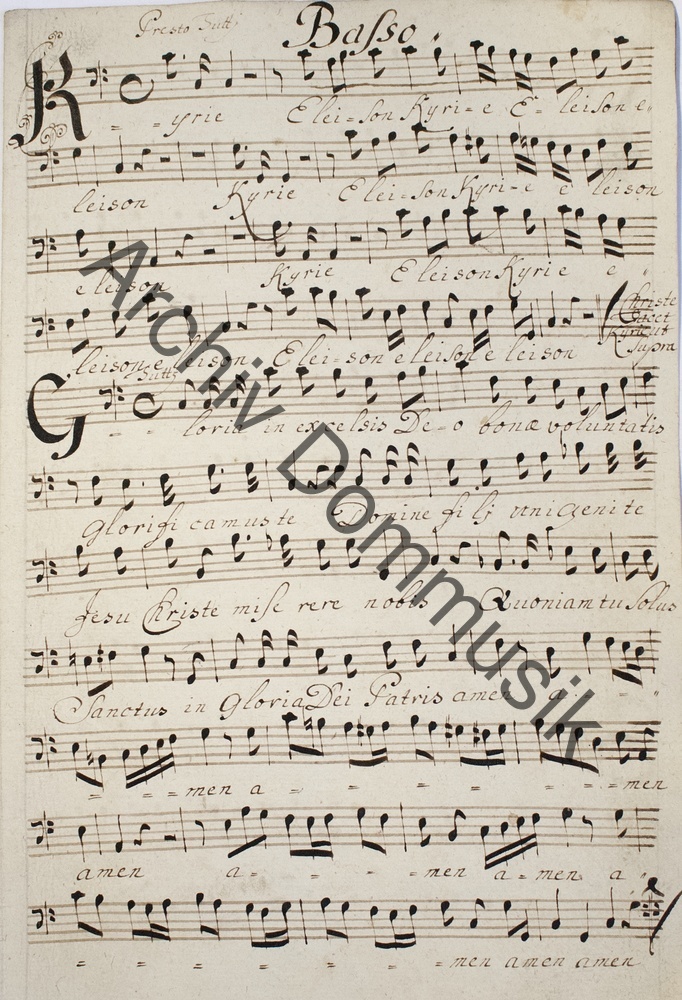 Presto Tutti Basso.
Kyrie Elei=son Kyri=e E=leison e=
leison Kyrie Elei=son Kyri=e e leison
eleison Kyrie Eleison Kyrie e=
leison e leison Elei=son e leison e leison
Christe
Tacet
Kyrie ut
Supra
Tutti
Gloria in excelsis De=o bonæ voluntatis
Glorifi camus te Domine fili unigenite
Jesu Christe mise rere nobis Quoniam tu Solus
Sanctus in Gloria Dei Patris amen a = =
= = =men a = = = = = =men
amen a= = = =men a=men a=
= = = = = = =men amen amen
Archiv Dommusik